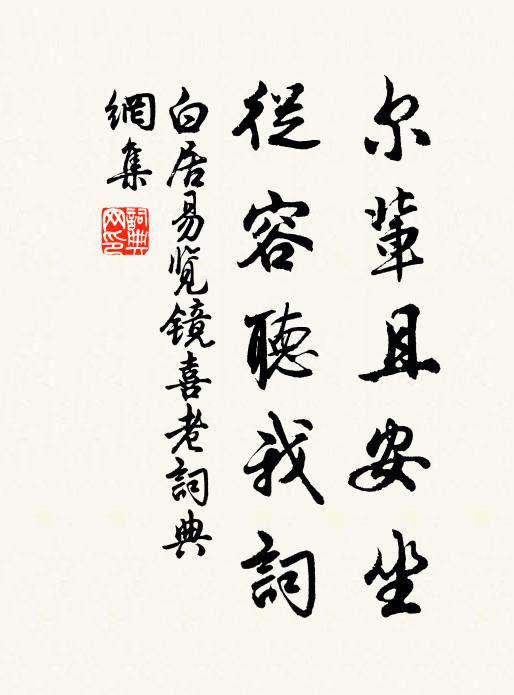 尔輩且安坐
從容聽我詞
白居易览镜喜老詞典
網集
詞典网印